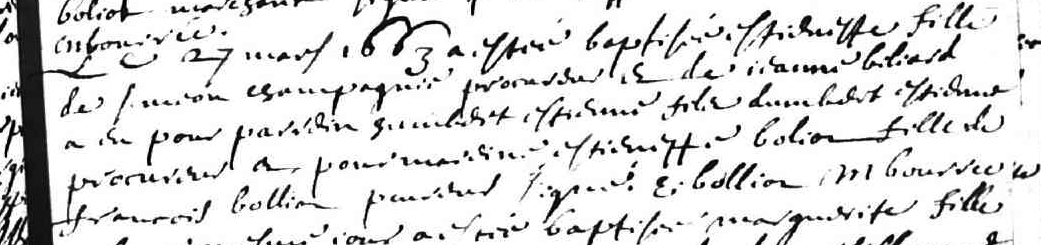 boliot marchant
mbourree.
Le 27 mars 1663 a estée baptisée estiennette fille
de simeon champagnie procureur et de ieanne biliard
a eu pour paredin humbert estienne filz dumbert estienne
procureur et pour mareine estiennette bolion fille de
francois bollion signé: bollion mbourree
iour a estée baptisée marguerite fille